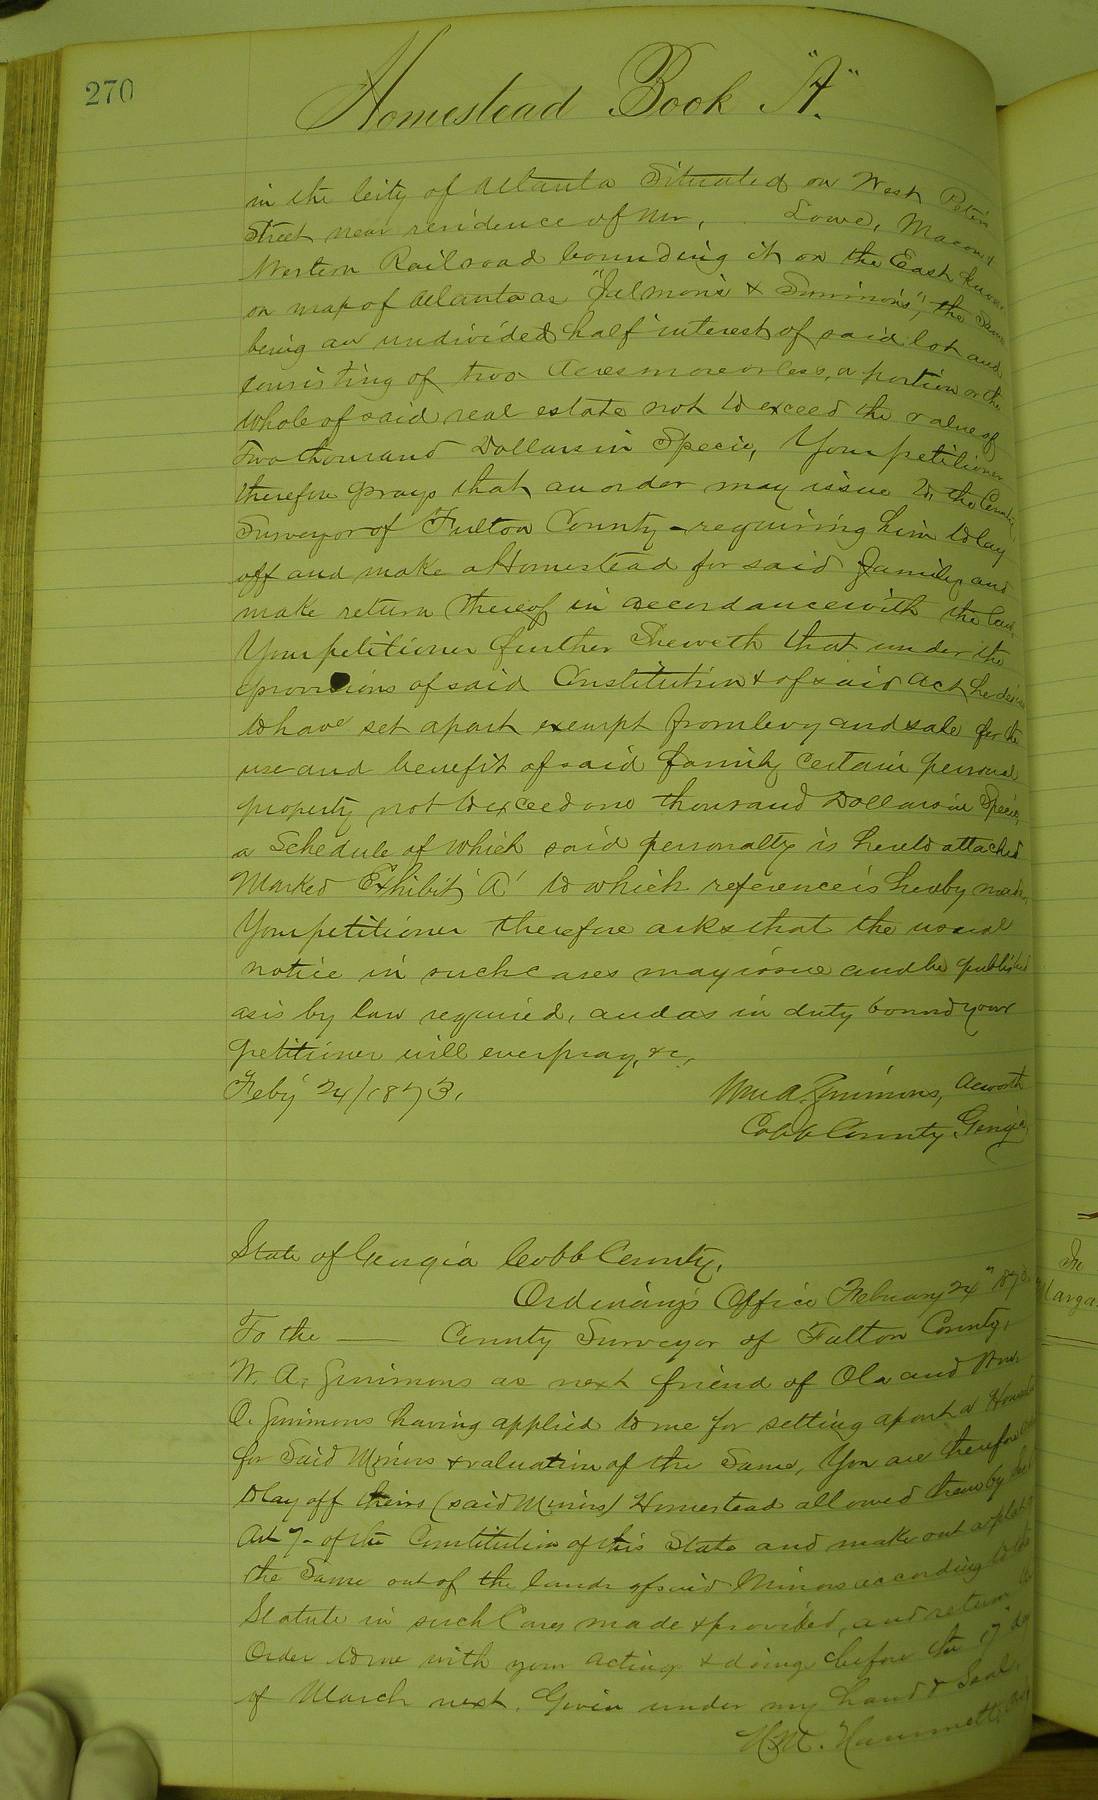 270
Homestead Book "A."
in the City of Atlanta Situated on West Peters
Street near residence of Mr, . Lowe, Macon &
Western Railroad bounding it on the East known
on map of Atlanta as "Julmon's & Simmons", the Same
being an undivided half interest of said lot and
consisting of two Acres more or less, a portion or the
whole of said real estate not to exceed the value of
Two thousand Dollars in Specie, Your petitioner
therefore prays that an order may issue to the County
Surveyor of Fulton County - requiring him to lay
off and make a Homestead for said family and
make return thereof in accordance with the law.
Your petitioner further Sheweth that under the
provisions of said Constitution & of said Act he desires
to have set apart exempt from levy and sale for the
use and benefit of said family certain personal
property not to exceed one thousand Dollars in Specie,
a Schedule of which said personalty is hereto attached
Marked Exhibit 'A' to which reference is hereby made,
Your petitioner therefore asks that the usual
notice in such cases may issue and be published
as is by law required, and as in duty bound your
petitioner will ever pray, &c,
Feby 24/1873.
Wm A. Simmons, Acworth
Cobb County, Georgia,
State of Georgia Cobb County,
Ordinary's Office February 24" 1873
To the — County Surveyor of Fulton County,
W. A. Simmons as next friend of Ola and Wm
O. Simmons having applied to me for setting apart a Homestead
for Said Minors & valuation of the Same, You are therefore
to lay off theirs (said Minors) Homestead allowed them by
Art 7- of the Constitution of this State and make out a plat of
the Same out of the lands of said Minors according to the
Statute in such Cases made & provided, and return this
Order to me with your acting & doings before the 17" day
of March next. Given under my hand & Seal,
H.M. Hammett, Ord
The
Marga